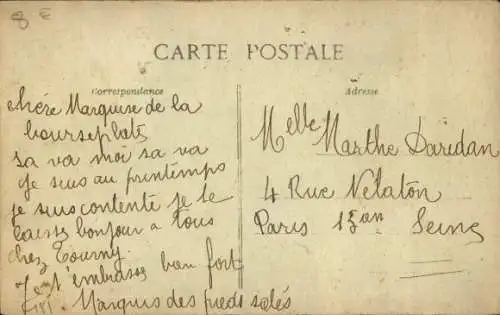 8 €
CARTE POSTALE
Correspondance
Adresse
chére Marquise de la
bourseplate
sa va moi sa va
je suis au printemps
je suis contente je te
laisse bonjour a tous
chez Tourny
Je t'embrasse bien fort
Marquis des pieds salés
Melle Marthe Daridan
4 Rue Nélaton
Paris 15 en Seine